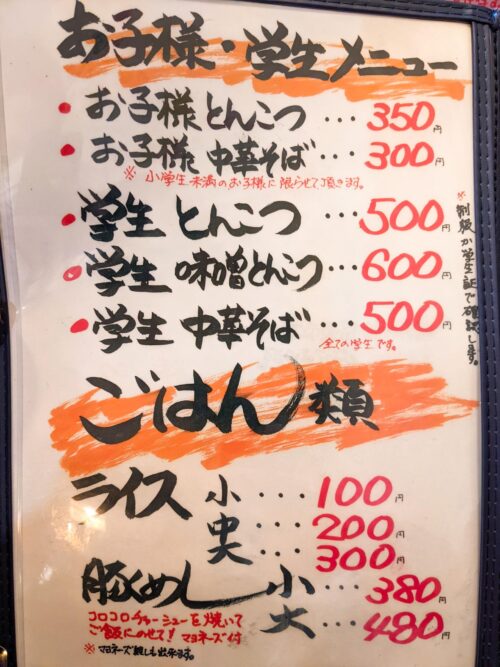 お子様・学生メニュー
• お子様とんこつ … 350円
• お子様中華そば … 300円
※小学生未満のお子様に限らせて頂きます。
• 学生とんこつ … 500円
• 学生味噌とんこつ … 600円
• 学生中華そば … 500円
全ての学生です。
※制服か学生証で確認します。
ごはん類
ライス 小 … 100円
中 … 200円
大 … 300円
豚くめし 小 … 380円
大 … 480円
コロコロチャーシューを焼いて
ご飯にのせて！マヨネーズ付
※マヨネーズ無しも出来ます。